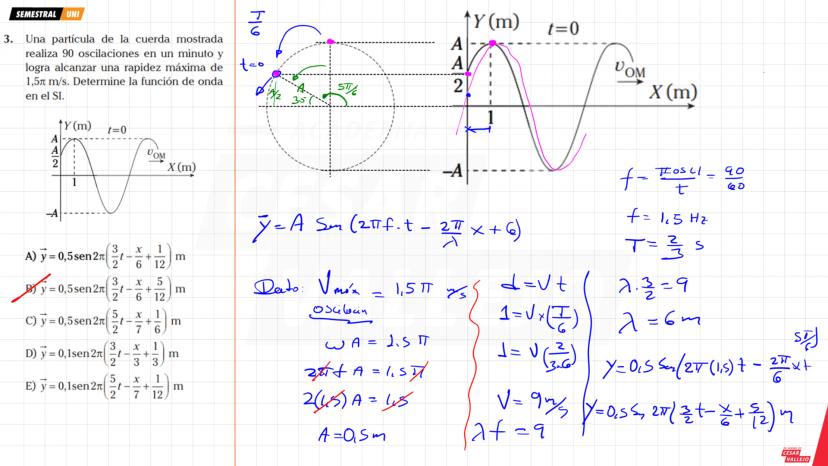 SEMESTRAL UNI
3. Una partícula de la cuerda mostrada
realiza 90 oscilaciones en un minuto y
logra alcanzar una rapidez máxima de
1,5π m/s. Determine la función de onda
en el SI.
Y(m) t=0
A
A/2
υOM
X(m)
1
–A
A) y⃗ = 0,5sen2π(3/2 t − x/6 + 1/12) m
B) y⃗ = 0,5sen2π(3/2 t − x/6 + 5/12) m
C) y⃗ = 0,5sen2π(5/2 t − x/7 + 1/6) m
D) y⃗ = 0,1sen2π(3/2 t − x/3 + 1/3) m
E) y⃗ = 0,1sen2π(5/2 t − x/7 + 1/12) m
T/6
t=0
A
A/2
5π/6
Y(m) t=0
A
A/2
υOM
X(m)
1
–A
y⃗ = A Sen (2πf·t − 2π/λ x + φ)
Dato: Vmáx = 1,5π m/s
oscilan
ωA = 1.5π
2πf A = 1,5π
2(1,5) A = 1,5
A = 0,5m
d = Vt
1 = V×(T/6)
1 = V(2/3·6)
V = 9 m/s
λf = 9
f = #oscl/t = 90/60
f = 1,5 Hz
T = 2/3 s
λ·3/2 = 9
λ = 6m
5π/6
y = 0,5 Sen(2π(1,5)t − 2π/6 x +
y = 0,5 Sen 2π(3/2 t − x/6 + 5/12) m
CÉSAR
VALLEJO